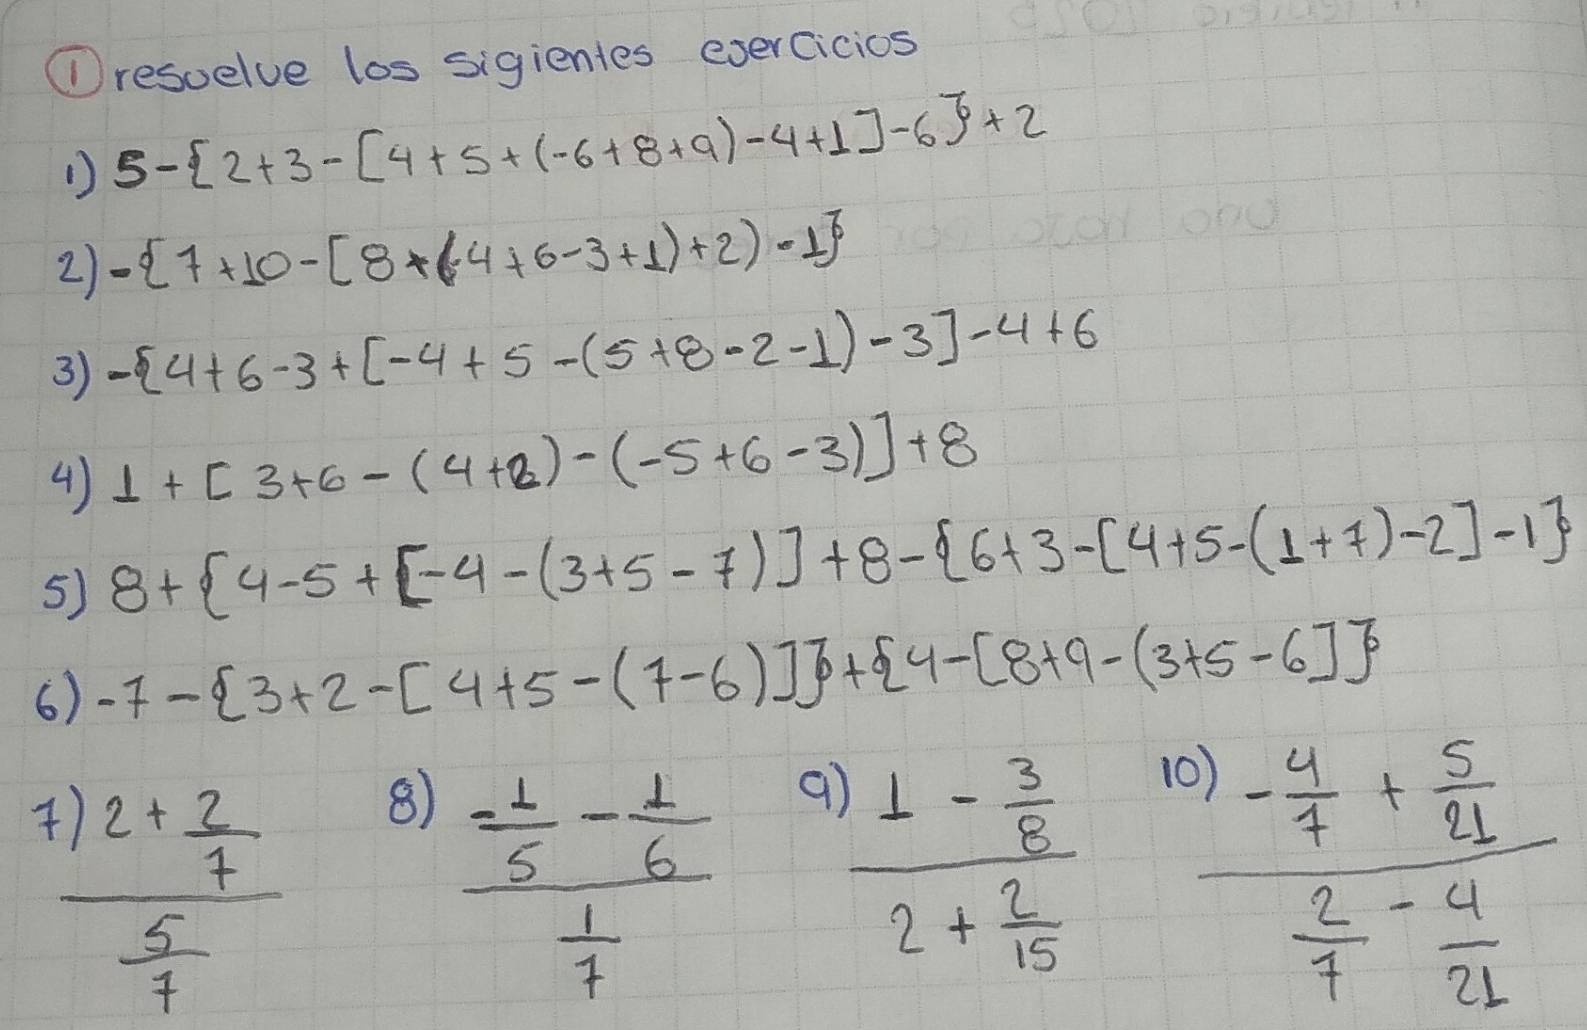 ① resuelve los sigientes esercicios
1) 5-{2+3-[4+5+(-6+8+9)-4+1]-6}+2
2) -{7+10-[8+(-4+6-3+1)+2)-1}
3) -{4+6-3+[-4+5-(5+8-2-1)-3]-4+6
4) 1+[3+6-(4+2)-(-5+6-3)]+8
5) 8+{4-5+[-4-(3+5-7)]+8-{6+3-[4+5-(1+7)-2]-1}
6) -7-{3+2-[4+5-(7-6)]}+{4-[8+9-(3+5-6]}
7) (2 + 2/7) / (5/7)
8) (-1/5 - 1/6) / (1/7)
9) (1 - 3/8) / (2 + 2/15)
10) (-4/7 + 5/21) / (2/7 - 4/21)